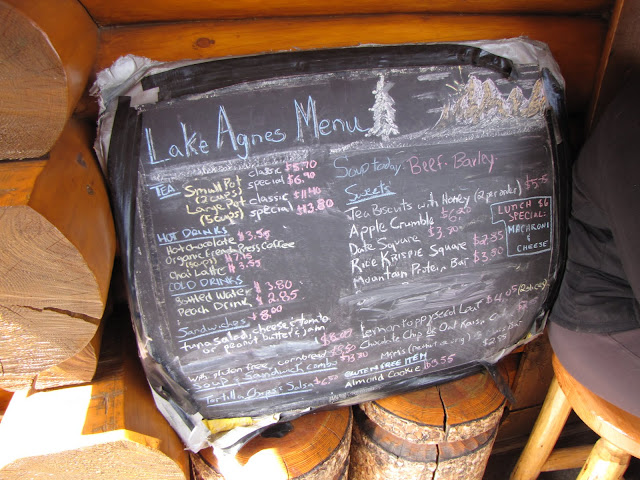 Lake Agnes Menu
TEA Small Pot classic $5.70
(2 cups) special $6.90
Large Pot classic $11.40
(5 cups) special $13.80
HOT DRINKS
Hot chocolate $3.55
Organic French Press Coffee
$7.15
Chai Latte $3.55
COLD DRINKS
Bottled Water 3.80
Peach Drink $2.85
Sandwiches $8.00
tuna salad, cheese & tomato
or peanut butter & jam
with gluten free cornbread
Soup & Sandwich combo $13.30
Tortilla Chips & Salsa $6.50
Soup today: Beef-Barley
Sweets
Tea Biscuits with Honey (2 per order)
Apple Crumble
Date Square $3.30
Rice Krispie Square $2.35
Mountain Protein Bar $3.50
LUNCH $6
SPECIAL:
MACARONI
&
CHEESE
Lemon Poppyseed Loaf $4.05
Chocolate Chip or Oat Raisin
GLUTEN FREE ITEM
Almond Cookie